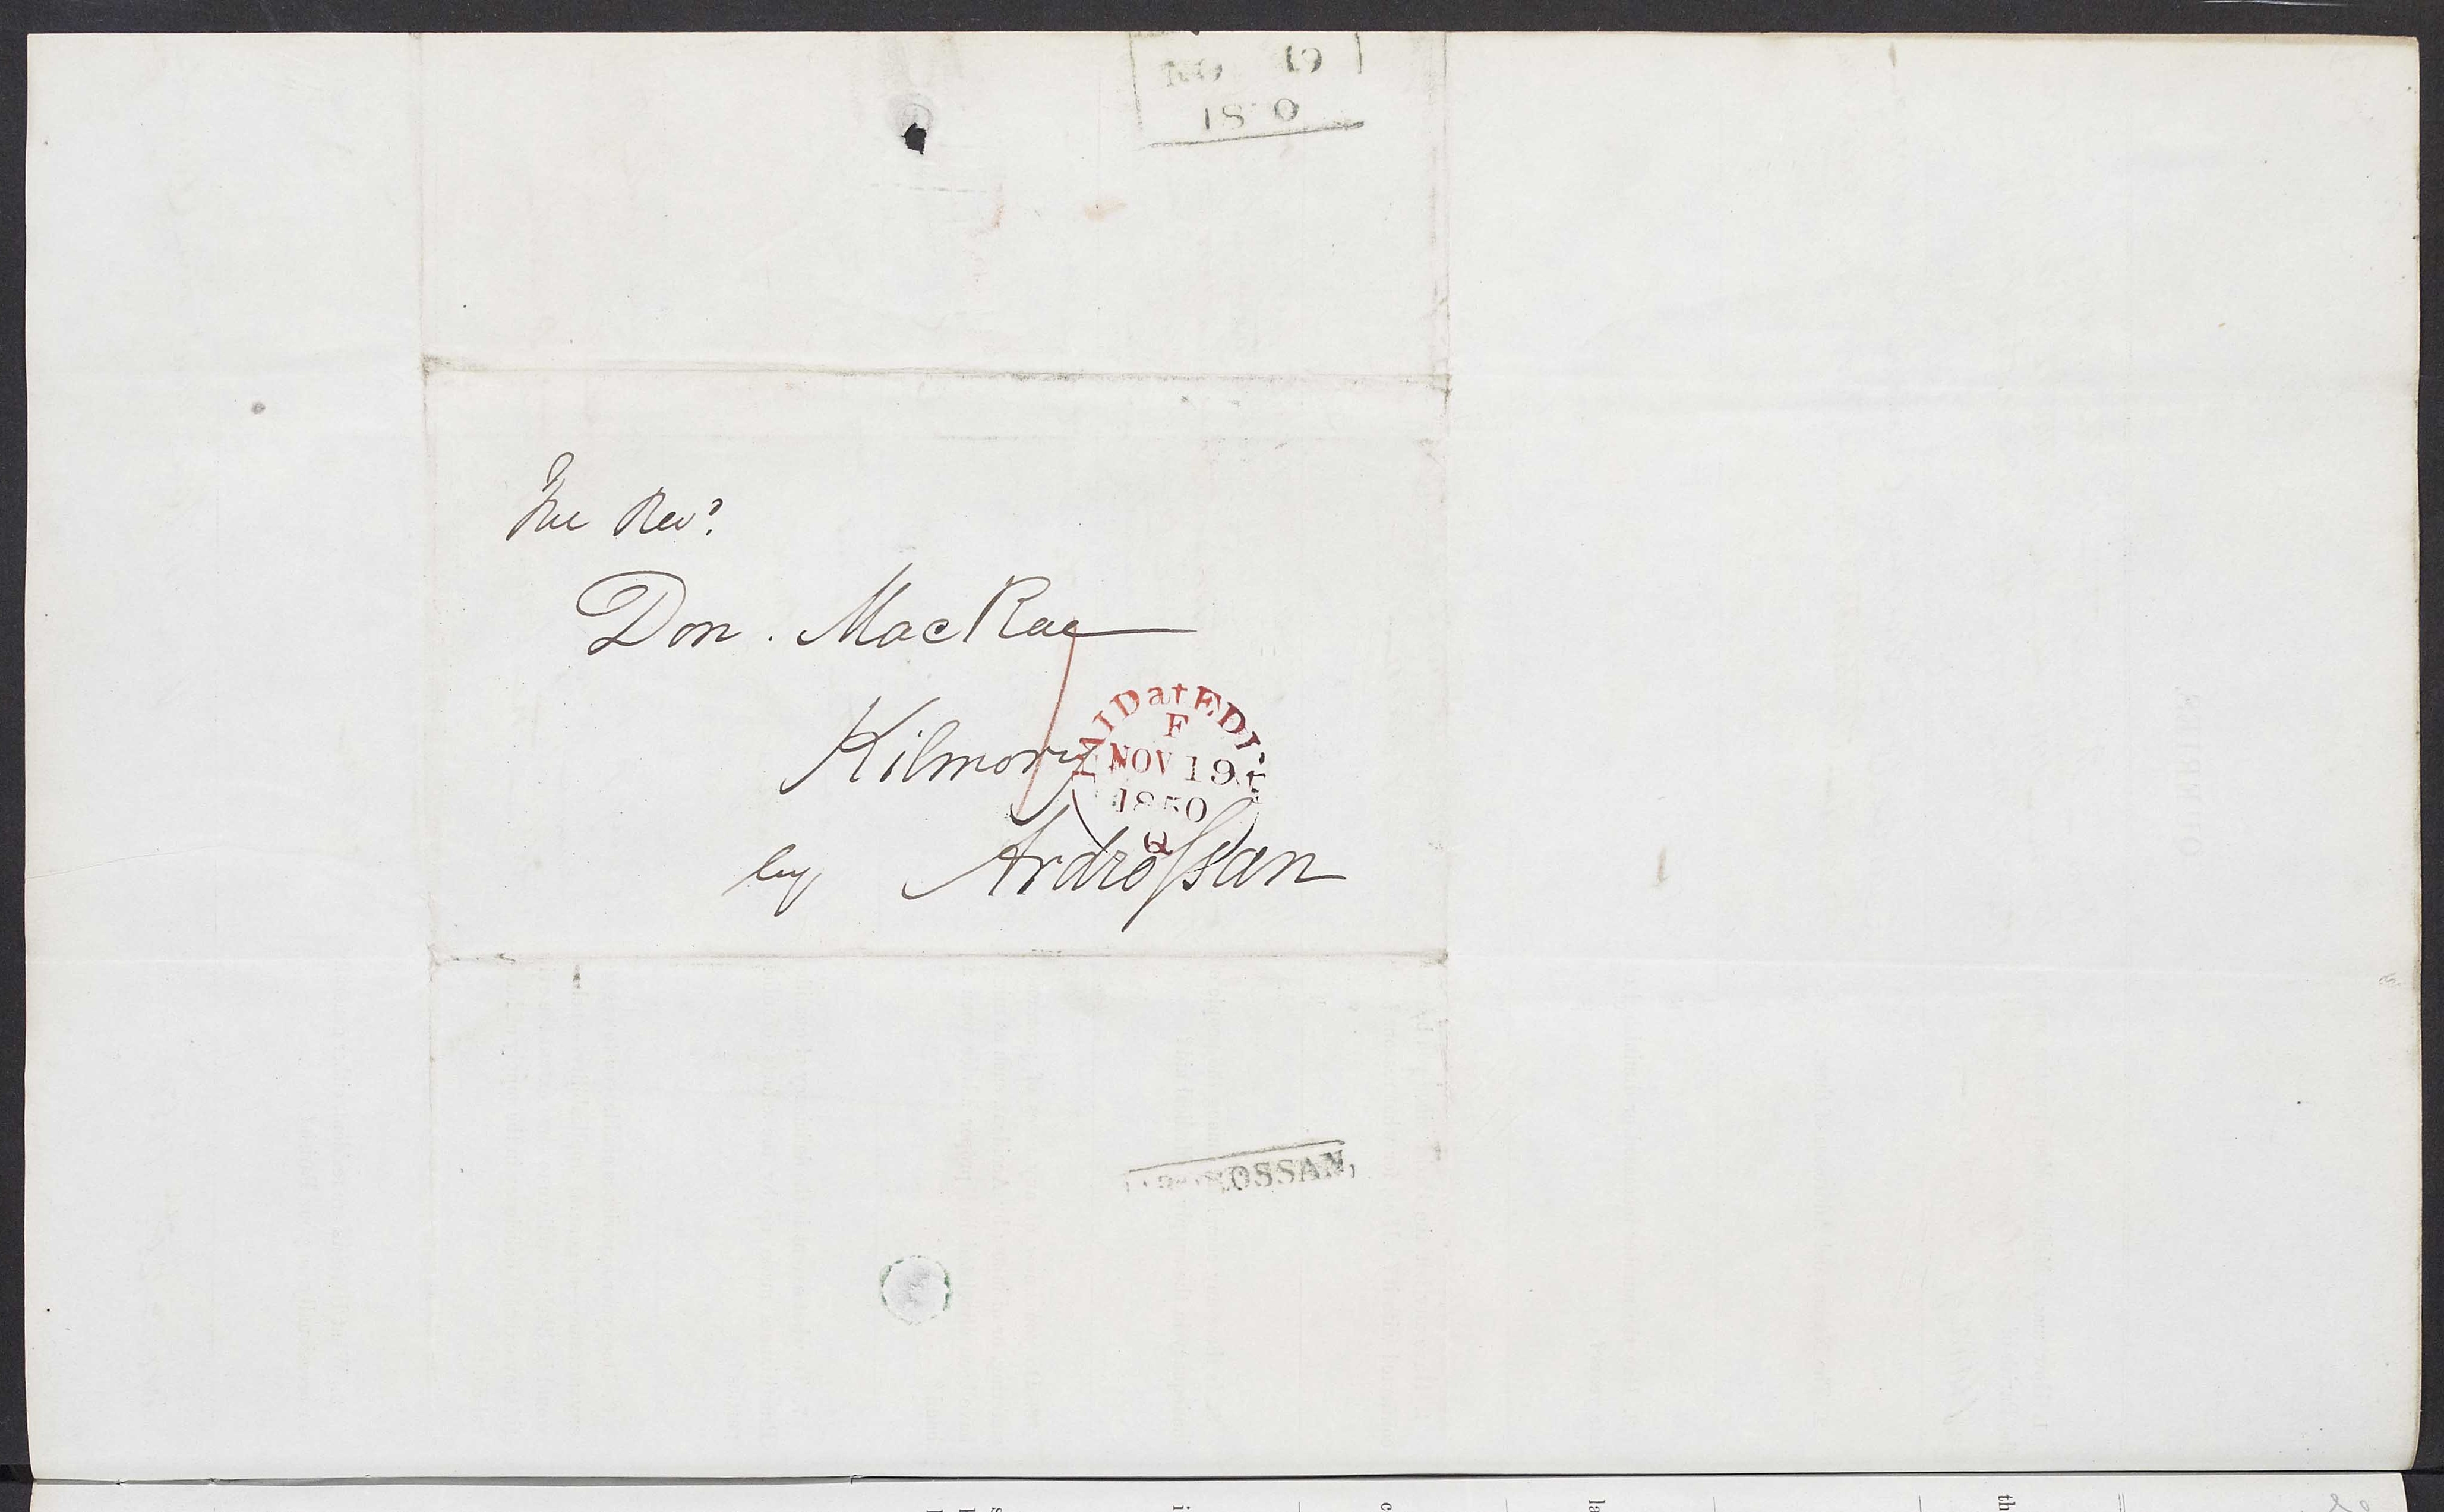 19
18 0
The Revd.
Don. MacRae
Kilmory
by Ardrossan
PAID at EDIN
F
NOV 19
1850
OSSAN